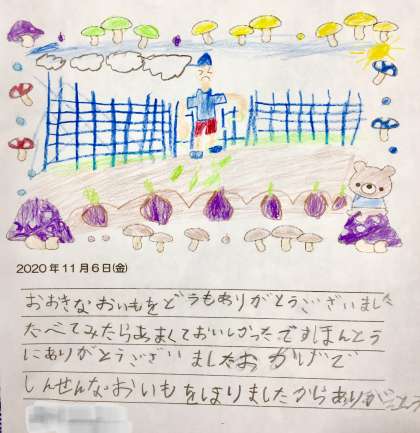 2020年11月6日(金)
おおきなおいもをどうもありがとうございました
たべてみたらあまくておいしかったですほんとう
にありがとうございましたおかげで
しんせんなおいもをほりましたからありがとう